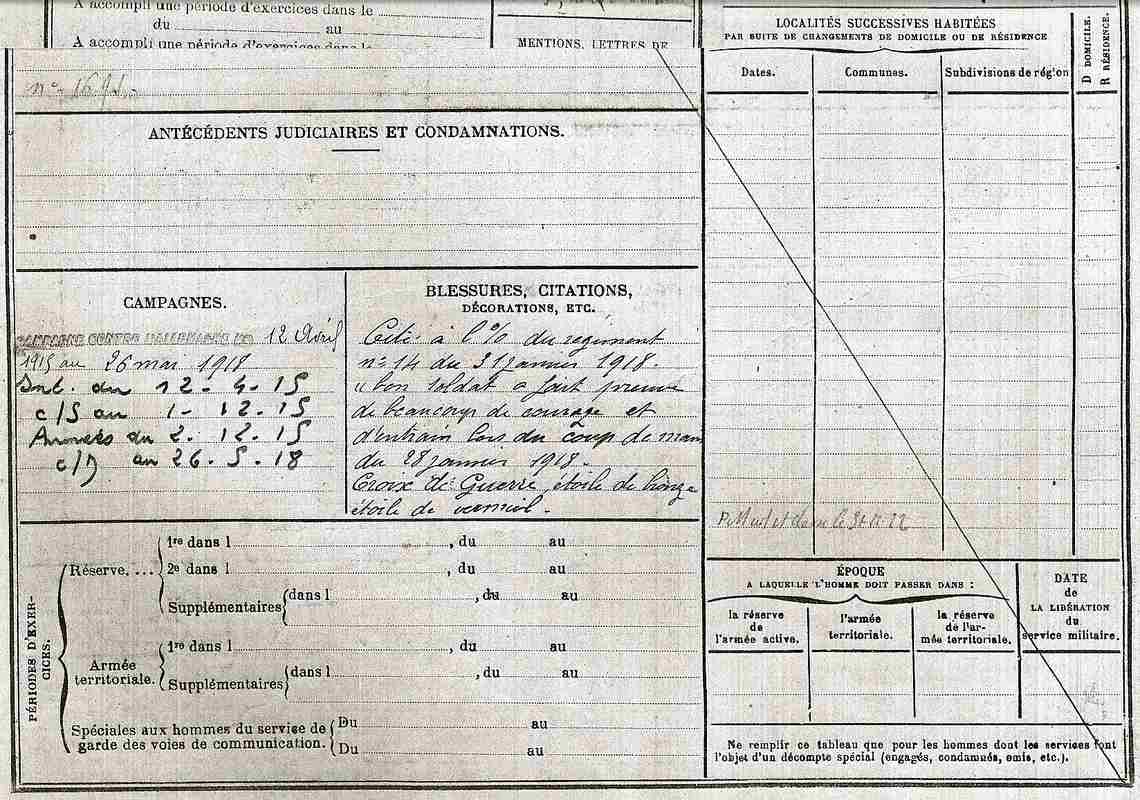 A accompli une période d'exercices dans le
du au
A accompli une période d'exercices dans le
MENTIONS, LETTRES DE
n° 16
ANTÉCÉDENTS JUDICIAIRES ET CONDAMNATIONS.
CAMPAGNES.
CAMPAGNE CONTRE L'ALLEMAGNE DU 12 Avril
1915 au 26 mai 1918
Int. du 12 - 4 - 15
c/S au 1 - 12 . 15
Armées du 2 . 12 . 15
c/D au 26 . 5 . 18
BLESSURES, CITATIONS,
DÉCORATIONS, ETC.
Cité à l'O/ du regiment
n° 14 du 31 janvier 1918.
"bon soldat a fait preuve
de beaucoup de courage et
d'entrain lors du coup de main
du 28 janvier 1918.
Croix de Guerre étoile de bronze
étoile de vermeil.
PÉRIODES D'EXERCICES.
Réserve....
1re dans l , du au
2e dans l , du au
Supplémentaires dans l , du au
Armée territoriale.
1re dans l , du au
Supplémentaires dans l , du au
Spéciales aux hommes du service de garde des voies de communication.
Du au
Du au
LOCALITÉS SUCCESSIVES HABITÉES
PAR SUITE DE CHANGEMENTS DE DOMICILE OU DE RÉSIDENCE
Dates. Communes. Subdivisions de région
D DOMICILE.
R RÉSIDENCE.
le 31 12 22
ÉPOQUE
A LAQUELLE L'HOMME DOIT PASSER DANS :
la réserve de l'armée active.
l'armée territoriale.
la réserve de l'armée territoriale.
DATE
de
LA LIBÉRATION
du
service militaire.
Ne remplir ce tableau que pour les hommes dont les services font
l'objet d'un décompte spécial (engagés, condamnés, omis, etc.).